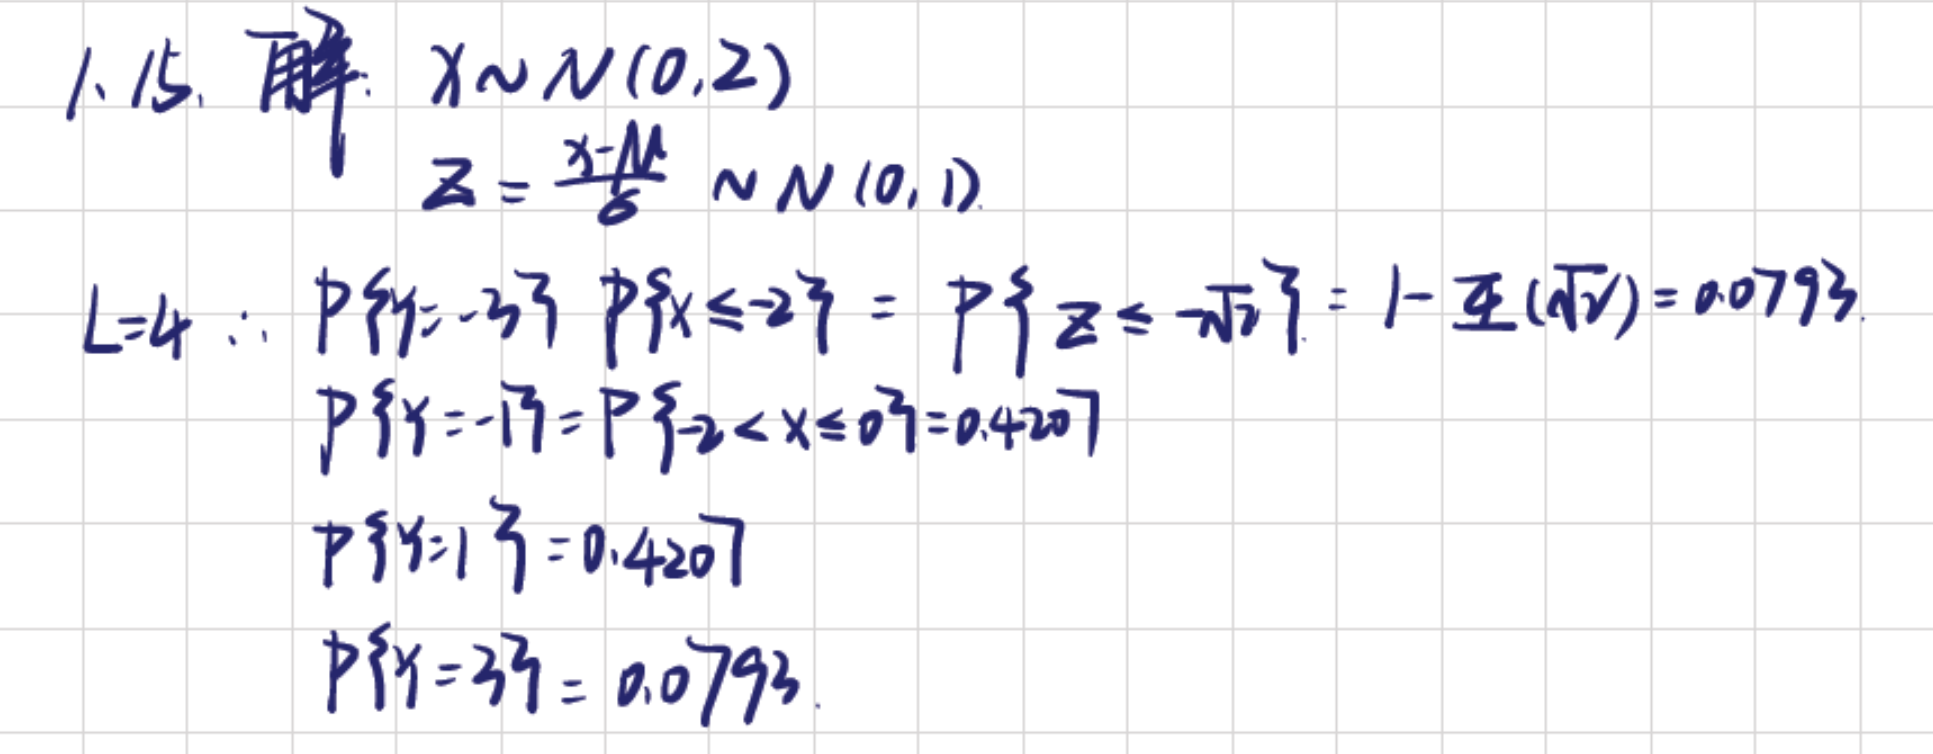 1.15. 解: X~N(0,2)
Z = (x-μ)/σ ~ N(0,1).
L=4 ∴ P{Y=-3} P{X≤-2} = P{Z≤-√2} = 1-Φ(√2) = 0.0793.
P{Y=-1} = P{-2<X≤0} = 0.4207
P{Y=1} = 0.4207
P{Y=3} = 0.0793.